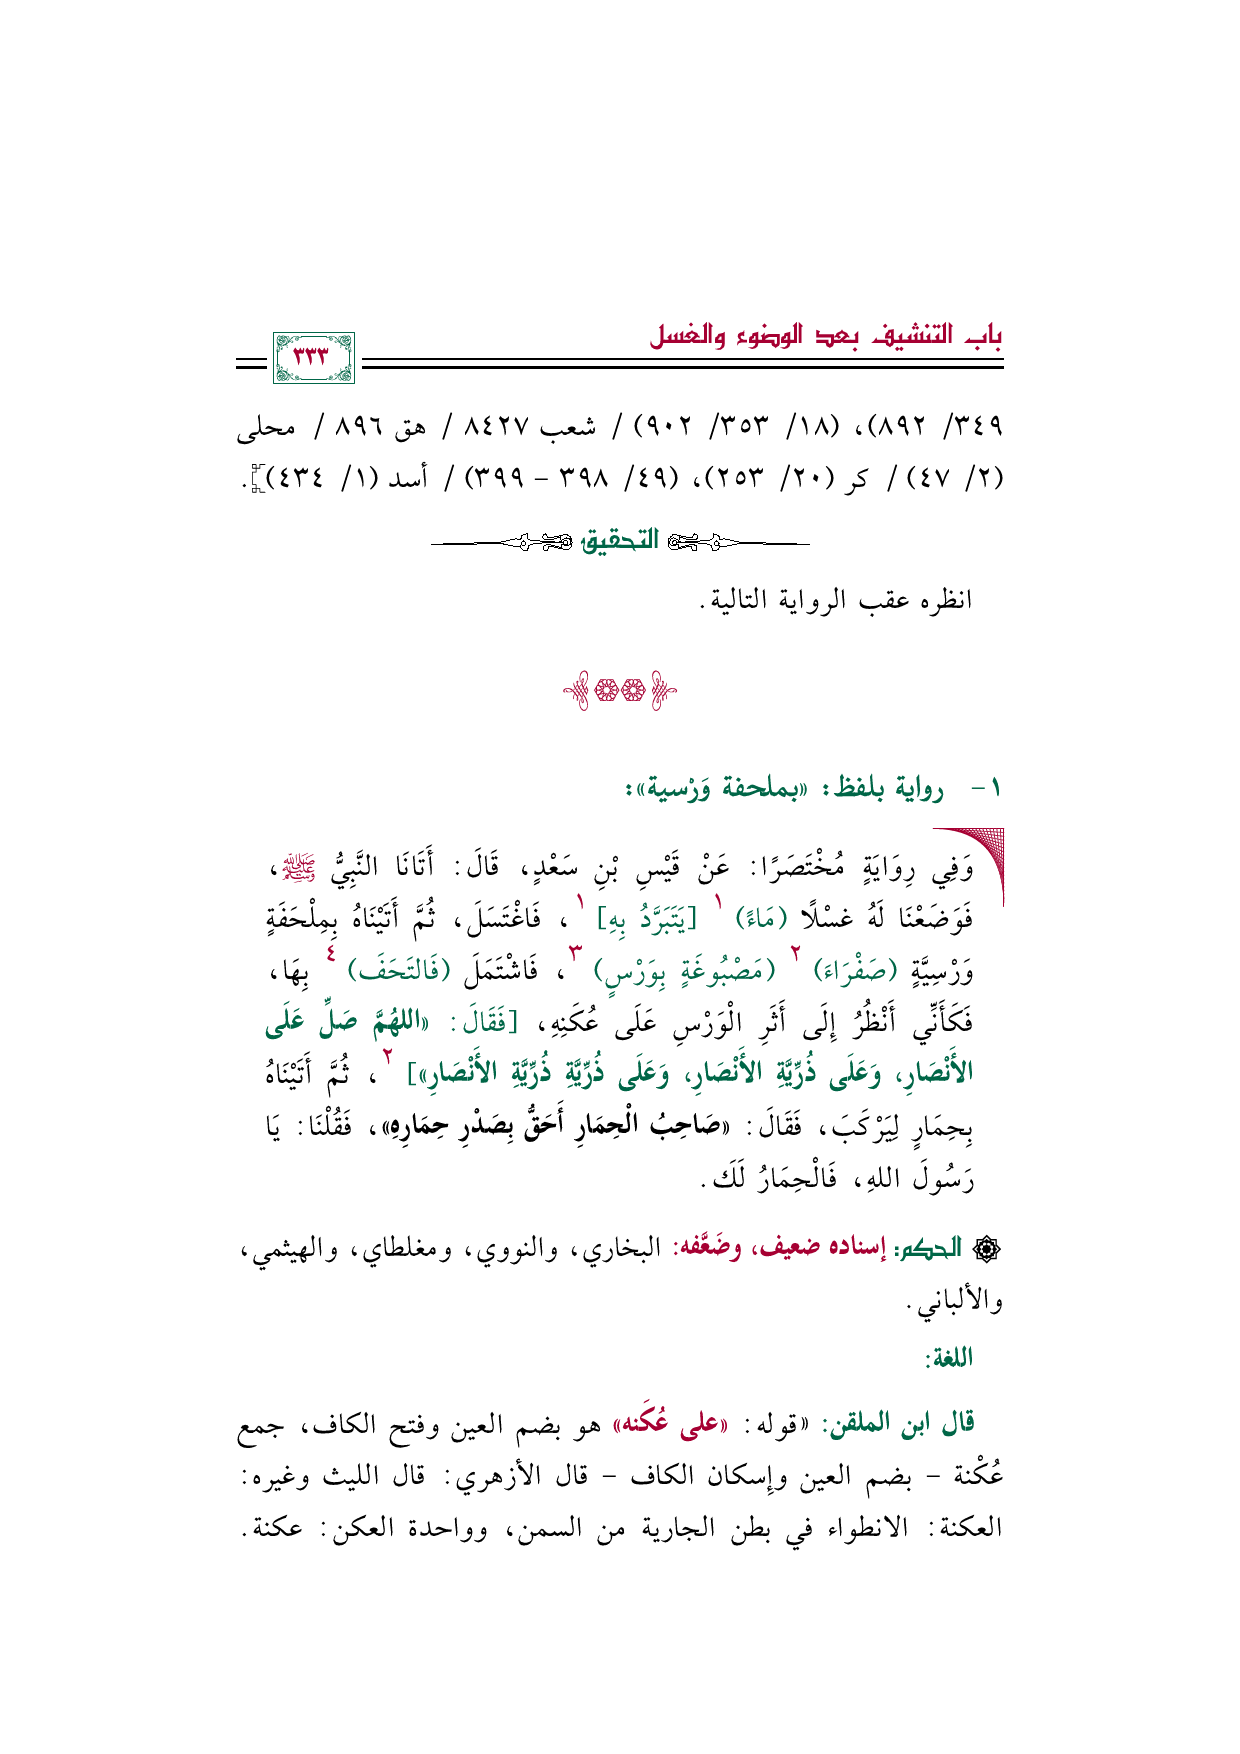 باب التنشيف بعد الوضوء والغسل
٣٣٣
٣٤٩/ ٨٩٢)، (١٨/ ٣٥٣/ ٩٠٢) / شعب ٨٤٢٧ / هق ٨٩٦ / محلى
(٢/ ٤٧) / كر (٢٠/ ٢٥٣)، (٤٩/ ٣٩٨ - ٣٩٩) / أسد (١/ ٤٣٤)].
التحقيق
انظره عقب الرواية التالية.
١- رواية بلفظ: «بملحفة وَرْسية»:
وَفِي رِوَايَةٍ مُخْتَصَرًا: عَنْ قَيْسِ بْنِ سَعْدٍ، قَالَ: أَتَانَا النَّبِيُّ ﷺ،
فَوَضَعْنَا لَهُ غسْلًا (مَاءً) ١ [يَتَبَرَّدُ بِهِ] ١، فَاغْتَسَلَ، ثُمَّ أَتَيْنَاهُ بِمِلْحَفَةٍ
وَرْسِيَّةٍ (صَفْرَاءَ) ٢ (مَصْبُوغَةٍ بِوَرْسٍ) ٣، فَاشْتَمَلَ (فَالتَحَفَ) ٤ بِهَا،
فَكَأَنِّي أَنْظُرُ إِلَى أَثَرِ الْوَرْسِ عَلَى عُكَنِهِ، [فَقَالَ: «اللهُمَّ صَلِّ عَلَى
الأَنْصَارِ، وَعَلَى ذُرِّيَّةِ الأَنْصَارِ، وَعَلَى ذُرِّيَّةِ ذُرِّيَّةِ الأَنْصَارِ»] ٢، ثُمَّ أَتَيْنَاهُ
بِحِمَارٍ لِيَرْكَبَ، فَقَالَ: «صَاحِبُ الْحِمَارِ أَحَقُّ بِصَدْرِ حِمَارِهِ»، فَقُلْنَا: يَا
رَسُولَ اللهِ، فَالْحِمَارُ لَكَ.
الحكم: إسناده ضعيف، وضَعَّفه: البخاري، والنووي، ومغلطاي، والهيثمي،
والألباني.
اللغة:
قال ابن الملقن: «قوله: «على عُكَنه» هو بضم العين وفتح الكاف، جمع
عُكْنة - بضم العين وإِسكان الكاف - قال الأزهري: قال الليث وغيره:
العكنة: الانطواء في بطن الجارية من السمن، وواحدة العكن: عكنة.